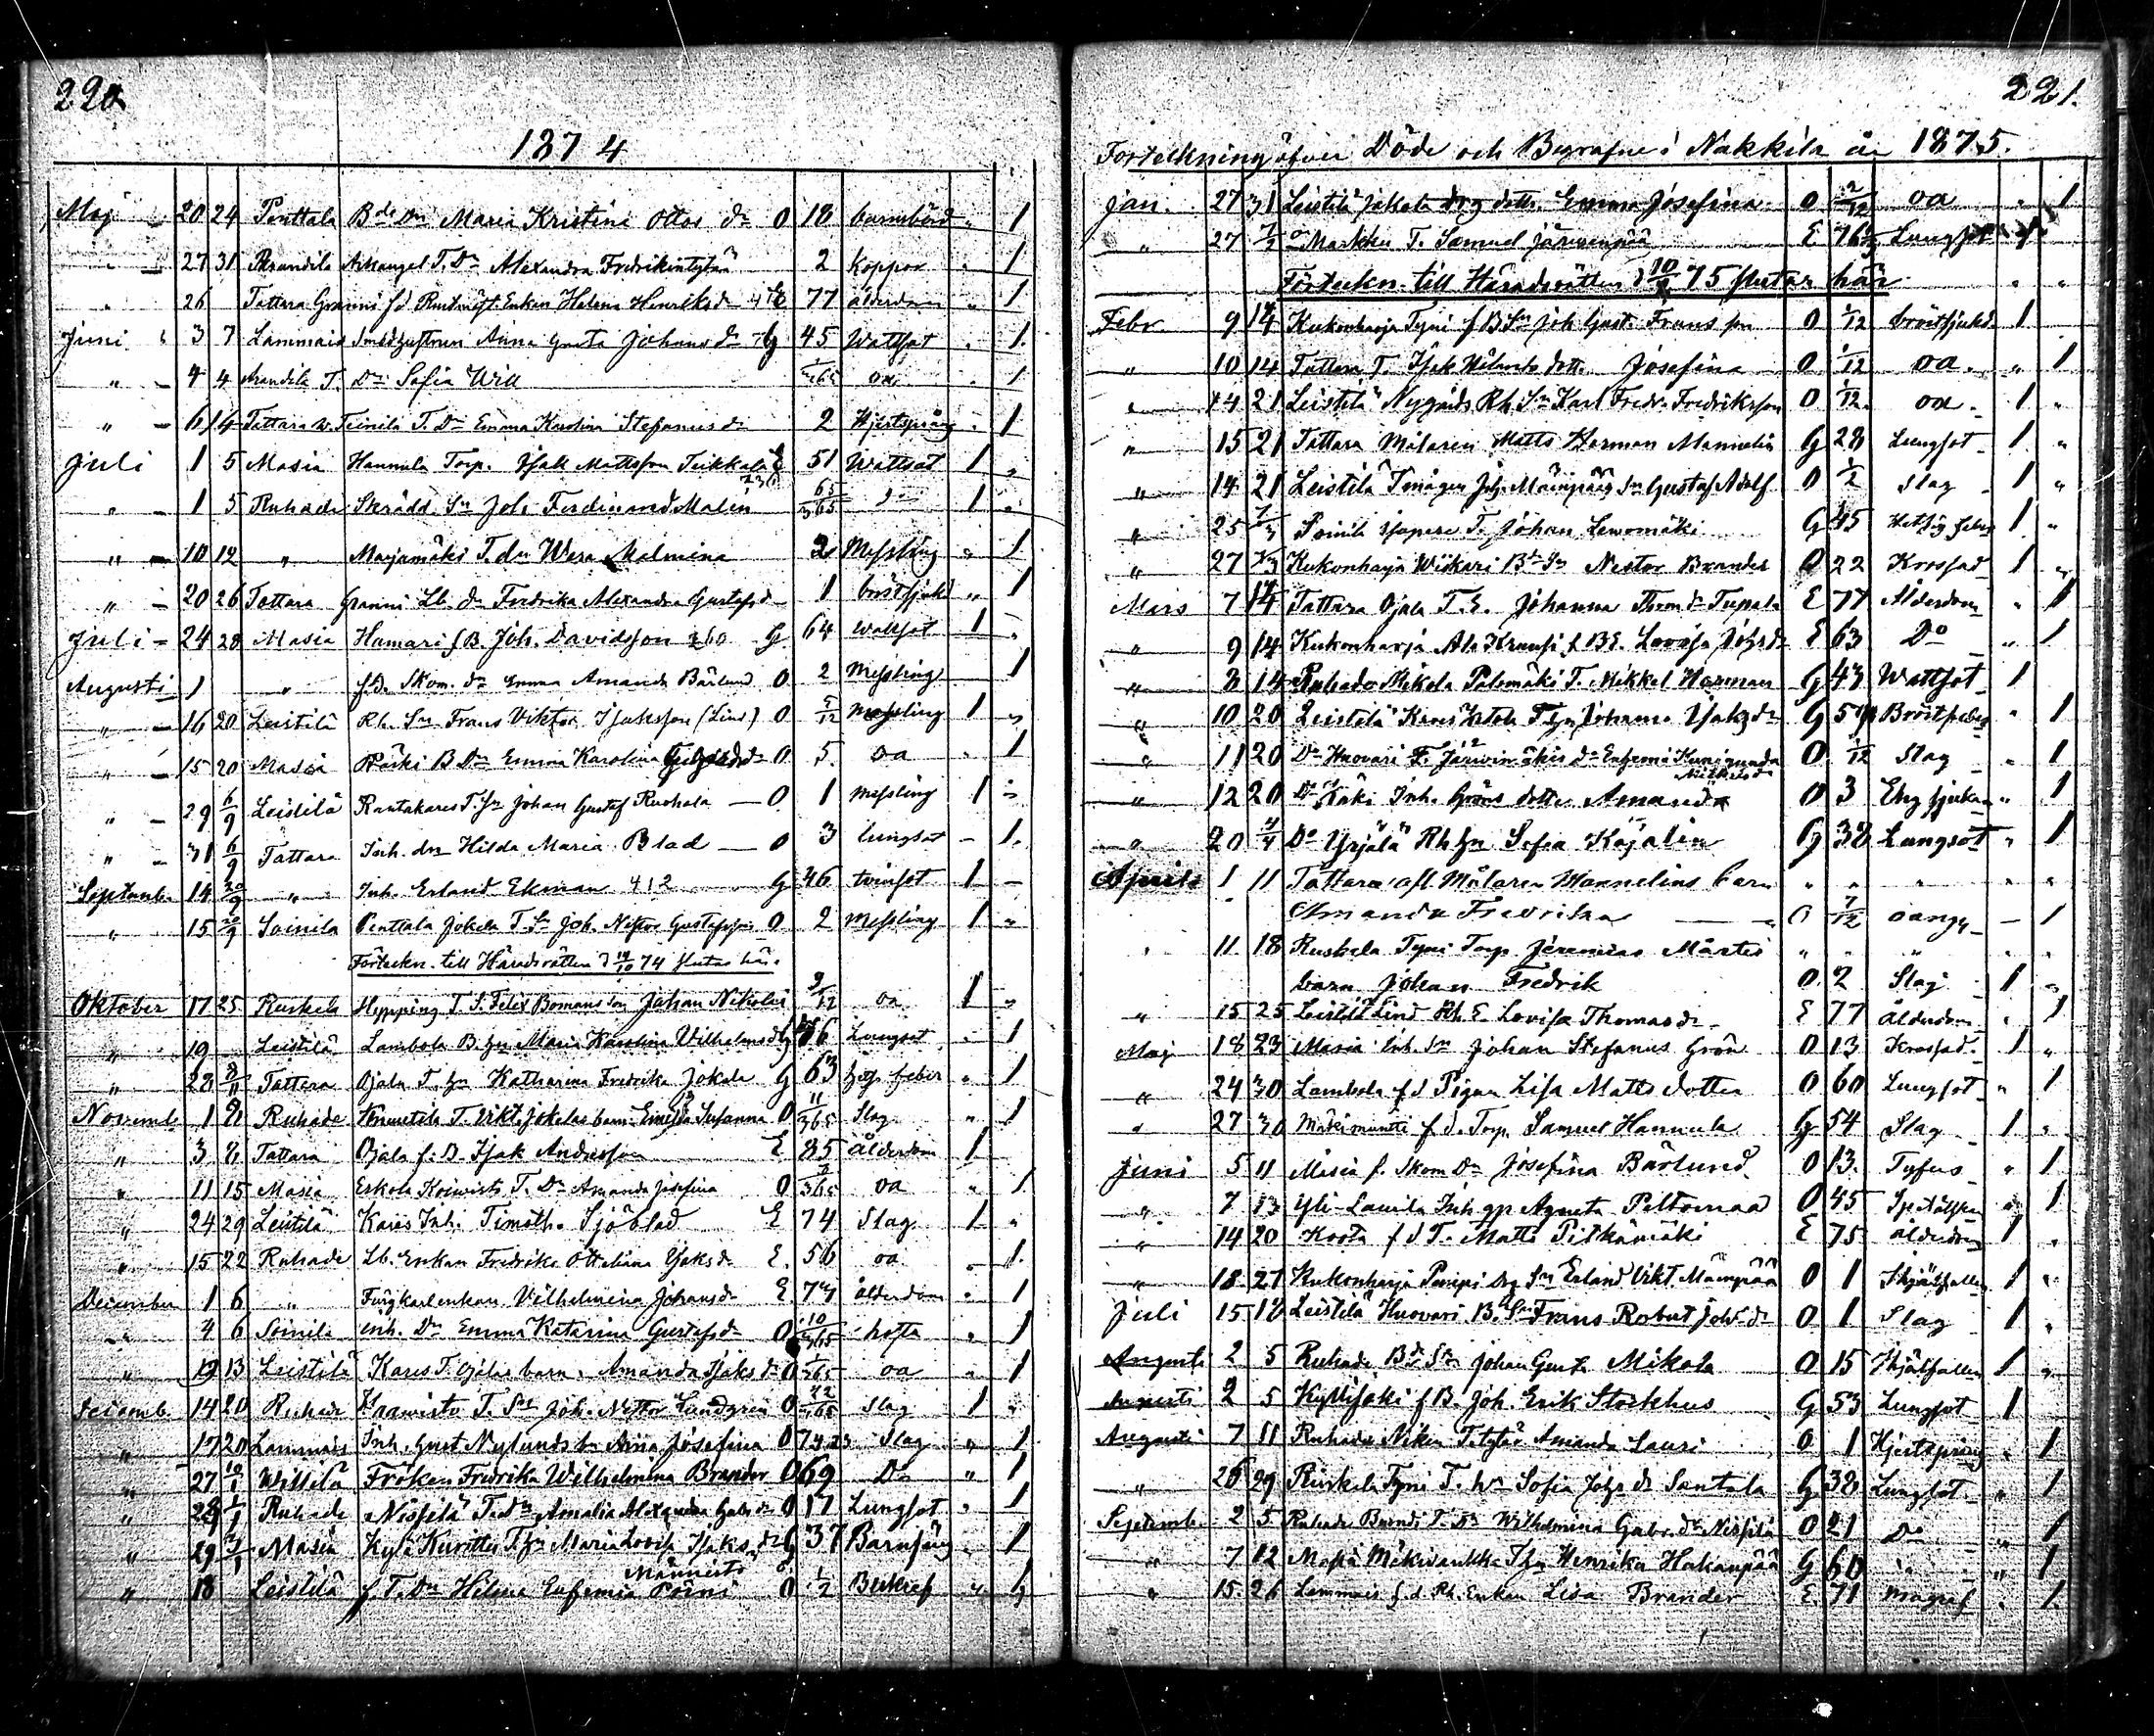 220
1874
Maj 20 24 Penttala Bde Dn Maria Kristina Ottos dr O 18 barnsbörd " 1
" 27 31 Arkangel T. Dr Alexandra Fredrikintytär 2 Koppor " 1
" 26 Tattara Granni f d Enkan Helena Henriksdr E 77 ålderdom " 1
Juni 3 7 Lammais Anna Greta Johans dr G 45 Wattsot " 1
" 4 4 T. Dr Sofia Will oa " 1
" 6 14 Tattara Teinilä T. Dr Emma Karolina Stefanus dr 2 Hjertsprång " 1
Juli 1 5 Masia Hannula Torp. Isak Mattsson Teikkala 51 Wattsot 1 "
" 1 5 Ruhade Skrädd. Sn Joh. Ferdinand Malin 1 "
" 10 12 " Marjamäki T. dr Wera Malmina 2 Messling " 1
" 20 26 Tattara Granni Lb. dr Fredrika Alexandra Gustafsd 1 bröstsjukd " 1
Juli 24 28 Masia Hamari f B. Joh. Davidsson 260 G 64 Wattsot 1 "
Augusti 1 " fd. Skom. dr Emma Amanda Bärlund O 2 Messling 1
" 16 20 Leistilä Rh. Sn Frans Viktor Isaksson (Lind) O 5/12 Messling 1 "
" 15 20 Masia B Dr Emma Karolina O 5 oa " 1
" 29 6/9 Leistilä Rantakares T. Sn Johan Gustaf Ruohola O 1 Messling 1 "
" 31 6/9 Tattara Inh. dr Hilda Maria Blad O 3 lungsot - 1.
Septemb. 14 20/9 " Inh. Erland Ekman 412 G 46 tvinsot 1 -
" 15 20/9 Soinila Penttala Jokela T. Sn Joh. Nestor Gustafsson O 2 Messling 1 "
Förteckn. till Häradsrätten d 19/10 74 slutas här.
Oktober 17 25 Ruskela Hepping T. S. Felix Bomans son Johan Nikolai 9/12 oa 1 "
" 19 Leistilä Lambola B. hu Maria Karolina Vilhelmsd G Lungsot " 1
" 28 8/11 Tattara Ojala T. hu Katharina Fredrika Jokela G 63 feber " 1
Novemb. 1 8 Ruhade T. Vikt. Jokelas barn Susanna O 11/365 Slag " 1
" 3 8 Tattara Ojala f. B. Isak Andersson E 85 Ålderdom 1
" 11 15 Masia Eskola Koiwisto T. Dr Amanda Josefina O oa " 1
" 24 29 Leistilä Kares Inh. Timoth. Sjöblad E 74 Slag 1 "
" 15 22 Ruhade Lb. Enkan Fredrika Ottiliana Isaksdr E. 56 oa " 1.
December 1 6 " Enkan Vilhelmina Johansdr E 74 ålderdom " 1
" 4 6 Soinila inh. Dr Emma Katarina Gustafsdr O 10/365 hosta " 1
" 12 13 Leistilä Kares T. Ojalas barn Amanda Isaks dr O oa " 1
Decemb. 14 20 Ruhade Haawisto T. Sn Joh. Nestor Lundgren O 22/365 Slag 1 "
" 17 20 Lammais Inh. Gust Nylunds dr Anna Josefina O Slag " 1
" 27 10/1 Willilä Fröken Fredrika Wilhelmina Brander O 69 Do " 1
" 28 1/1 Ruhade Nissilä T. Dr Amalia Alexandra Gabr dr O 17 Lungsot " 1
" 29 3/1 Masia Kylä Kuritti T. hu Maria Lovisa Isaksdr G 37 Barnsäng " 1
Männistö
" 18 Leistilä f. T. Dr Hilma Eufemia Pöini O 1/2 " 1
221.
Forteckning öfver Döde och Begrafne i Nakkila år 1875.
Jan. 27 31 Leistilä Jokela drg dott. Emma Josefina O 2/12 oa " 1
" 27 7/2 Do Markku T. Samuel Järwenpää E 76 Lungsot 1
Förteckn. till Häradsrätten d 10/2 75 slutar här " "
Febr. 9 14 Kukonharja Tyni f B Sn Joh Gust. Frans son O 1/12 bröstsjukd. 1
" 10 14 Tattara T. Isak Wilands dott. Josefina O 1/12 oa. " 1
" 14 21 Leistilä Nygårds Rh. Sn Karl Fredr. Fredriksson O 1/12 oa. 1 "
" 15 21 Tattara Målaren Matts Herman Mannelin G 28 Lungsot 1 "
" 14 21 Leistilä Tmågen Joh. Mäenpää Sn Gustaf Adolf O 1/2 Slag 1 "
" 25 7/3 Soinila Isopere T. Johan Lewomäki G 45 Hetsig feber 1 "
" 27 7/3 Kukonharja Wiikari Bd Sn Nestor Brander O 22 Krossad 1 "
Mars 7 14 Tattara Ojala T. E. Johanna Thom. dr Tupala E 77 Ålderdom " 1
" 9 14 Kukonharja Ala Krausi f BE. Lovisa Johs dr E 63 Do " 1
" 8 14 Ruhade Mikola Palomäki T. Mikkel Herman G 43 Wattsot 1
" 10 20 Leistilä Kares T. hu Johanna Isaksdr G 59 Bröstfeber " 1
" 11 20 Do Huovari T. Järwinmäkis dr Eufemia Kunigunda O 1/12 Slag " 1
Mikkelsdr
" 12 20 Do Käki Inh. Gröns dotter Amanda O 3 Eng sjukan " 1
" 20 4/4 Do Yrjälä Rh hu Sofia Kojalin G 38 Lungsot " 1
April 1 11 Tattara afl. Målaren Mannelins barn " " " " "
Amanda Fredrika O 7/12 oangif - 1
" 11 18 Ruskela Tyni Torp Jeremias Mårtes " " " " "
barn Johan Fredrik O 2 Slag 1 "
" 15 25 Leistilä Lind Rh. E. Lovisa Thomas dr E 77 Ålderdom " 1
Maj 18 23 Masia Inh. Sn Johan Stefanus Grön O 13 Krossad 1 "
" 24 30 Lambola f d Pigan Lisa Matts dotter O 60 Lungsot " 1
" 27 30 f. d. Torp. Samuel Hannula G 54 Slag 1 "
Juni 5 11 Masia f. Skom Dr Josefina Bärlund O 13. Tyfus " 1
" 7 13 Yli-Lauila Inh gp Agneta Peltomaa O 45 " 1
" 14 20 Koota f d T. Matts Pitkämäki E 75 ålderdom 1 "
" 18 27 Kukonharja Penpi drg Sn Erland Vikt. Mäenpää O 1 Skjälfallen 1 "
Juli 15 18 Leistilä Huovari B. Sn Frans Robert Joh. dr O 1 Slag 1 "
Augusti 2 5 Ruhade Bd Sn Johan Gust. Mikola O 15 Skjälfallen 1 "
Augusti 2 5 Kyllijoki f B. Joh. Erik Storkhus G 53 Lungsot 1
Augusti 7 11 Ruhade T. tytär Amanda Lauri O 1 Hjertspring " 1
" 26 29 Ruskela Tyni T. hu Sofia Johs dr Santala G 38 Lungsot " 1
Septemb. 2 5 Ruhade T. Dr Wilhelmina Gabr. dr Nissilä O 21 Do " 1
" 7 12 Masia T. hu Henrika Hakanpää G 60 " " 1
" 15 26 Lammais f. d. Rh. Enkan Lisa Brander E. 71 " 1.